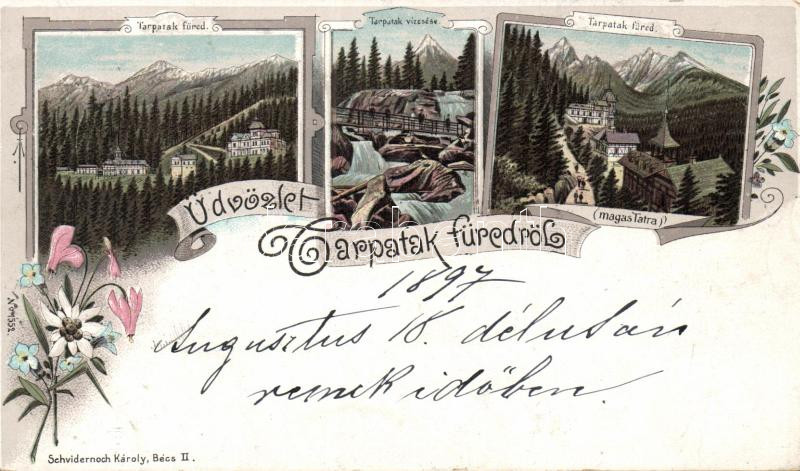 Tarpatak füred.
Tarpatak vizesése.
Tarpatak füred.
Üdvözlet
(magas Tatra)
Tarpatak füredről
1897
Augusztus 18. délután
remek időben.
Schvidernoch Károly, Bécs II.